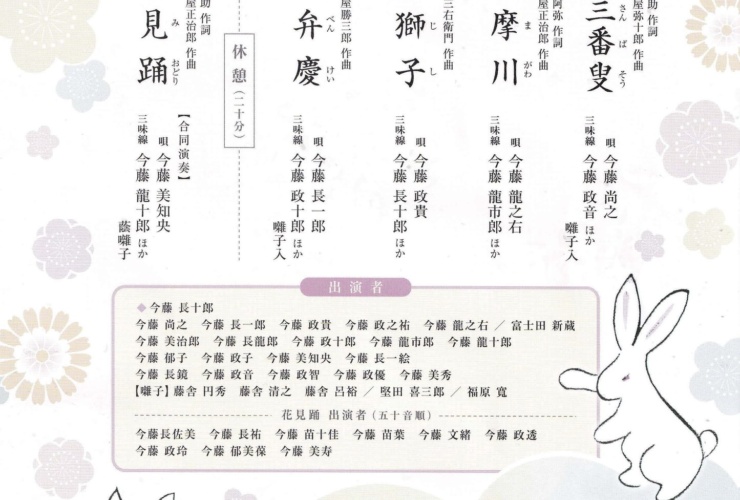 助 作詞
屋弥十郎 作曲
三番叟
さんばそう
唄 今藤 尚之
三味線 今藤 政音 ほか
囃子入
阿弥 作詞
屋正治郎 作曲
摩川
まがわ
唄 今藤 龍之右
三味線 今藤 龍市郎 ほか
三右衛門 作曲
獅子
じし
唄 今藤 政貴
三味線 今藤 長十郎 ほか
屋勝三郎 作曲
弁慶
べんけい
唄 今藤 長一郎
三味線 今藤 政十郎 ほか
囃子入
休憩（二十分）
助 作詞
屋正治郎 作曲
見踊
みおどり
【合同演奏】
唄 今藤 美知央
三味線 今藤 龍十郎 ほか
蔭囃子
出演者
◆今藤 長十郎
今藤 尚之 今藤 長一郎 今藤 政貴 今藤 政之祐 今藤 龍之右 ／ 富士田 新蔵
今藤 美治郎 今藤 長龍郎 今藤 政十郎 今藤 龍市郎 今藤 龍十郎
今藤 郁子 今藤 政子 今藤 美知央 今藤 長一絵
今藤 長鏡 今藤 政音 今藤 政智 今藤 政優 今藤 美秀
【囃子】藤舎 円秀 藤舎 清之 藤舎 呂裕 ／ 堅田 喜三郎 ／ 福原 寛
花見踊 出演者（五十音順）
今藤長佐美 今藤 長祐 今藤 苗十佳 今藤 苗葉 今藤 文緒 今藤 政透
今藤 政玲 今藤 郁美葆 今藤 美寿